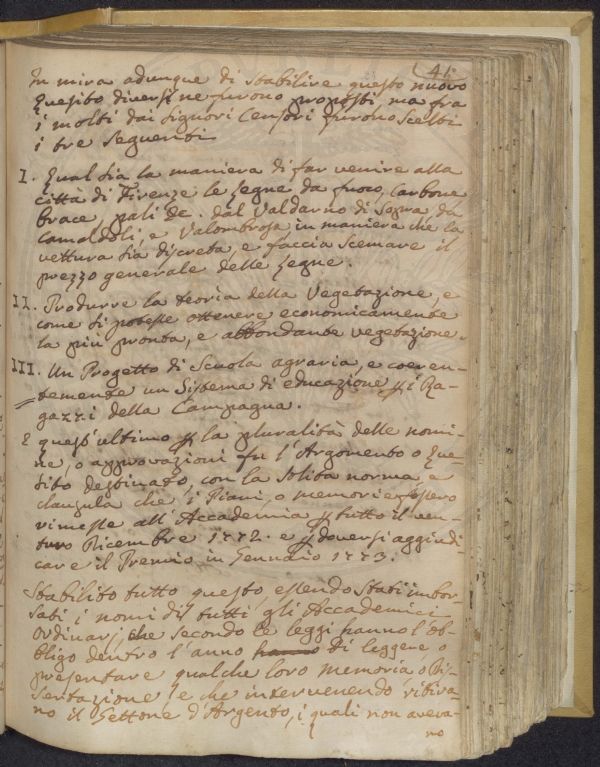 41.
In mira adunque di stabilire questo nuovo
Quesito diversi ne furono proposti, ma fra
i molti dai Signori Censori furono scelti
i tre seguenti
I. Qual sia la maniera di far venire alla
città di Firenze le legne da fuoco, Carbone
brace, pali &c. dal Valdarno di Sopra, da
Camaldoli, e Valombrosa, in maniera che la
vettura sia discreta, e faccia scemare il
prezzo generale delle legne.
II. Produrre la teoria della Vegetazione, e
come si potesse ottenere economicamente
la più pronta, e abbondante vegetazione.
III. Un Progetto di Scuola agraria, e coeren-
temente un Sistema di educazione p i Ra-
gazzi della Campagna.
E quest'ultimo p la pluralità delle nomi-
ne, o approvazioni fu l'Argomento o Que-
sito destinato, con la solita norma, e
clausula che i Piani, o memorie fossero
rimesse all'Accademia p tutto il ven-
turo Dicembre 1772. e p doversi aggiudi-
care il Premio in Gennaio 1773.
Stabilito tutto questo, essendo stati imbor-
sati i nomi di tutti gli Accademici
Ordinarj, che secondo le leggi hanno l'ob-
bligo dentro l'anno di leggere, o
presentare qualche loro memoria, o Dis-
sertazione e che intervenendo ritira-
no il Gettone d'Argento, i quali non aveva-
no